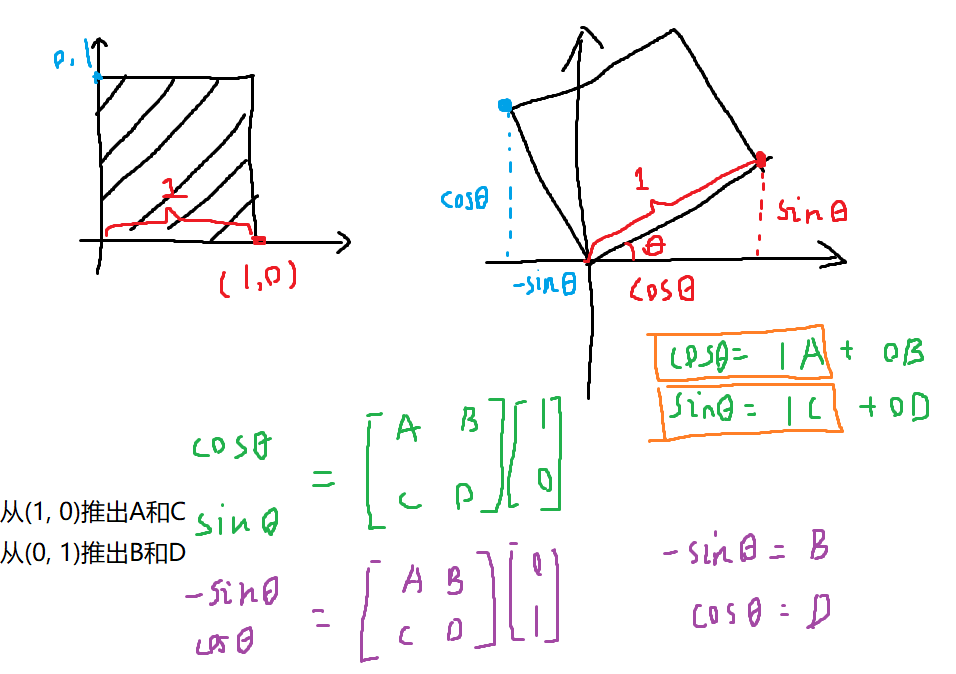 0,1
1
(1,0)
cosθ
1
θ
sinθ
-sinθ
cosθ
cosθ = 1A + 0B
sinθ = 1C + 0D
cosθ
sinθ
=
[A B
C D]
[1
0]
从(1, 0)推出A和C
从(0, 1)推出B和D
-sinθ
cosθ
=
[A B
C D]
[0
1]
-sinθ = B
cosθ = D